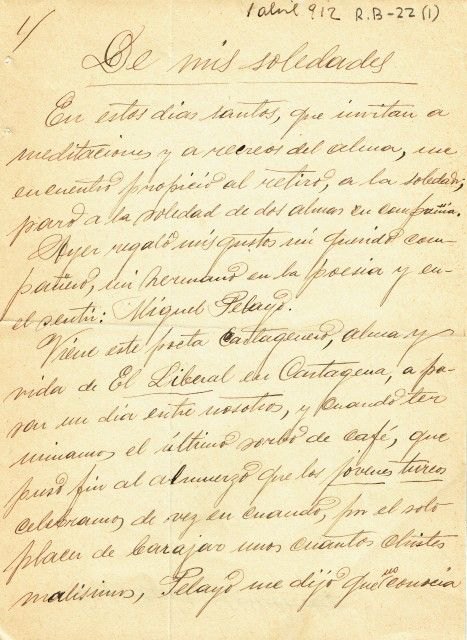 1/
1 abril 912 R.B-22 (1)
De mis soledades
En estos dias santos, que invitan a
meditaciones y a recreos del alma, me
encuentro propicio al retiro, a la soledad;
pero a la soledad de dos almas en compañia.
Ayer regaló mis gustos mi querido com-
pañero, mi hermano en la poesia y en
el sentir: Miguel Pelayo.
Viene este poeta Cartagenero, alma y
vida de El Liberal en Cartagena, a pa-
sar un dia entre nosotros, y cuando ter
minamos el último sorbo de café, que
puso fin al almuerzo que los jovenes turcos
celebramos de vez en cuando, por el solo
placer de barajar unos cuantos chistes
malisimos, Pelayo me dijo que no conocia